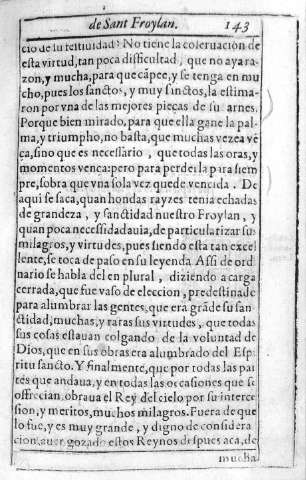 de Sant Froylan. 143
cio de su festiuidad? No tiene la coseruacion de
esta virtud, tan poca dificultad, que no aya ra-
zon, y mucha, para que cãpee, y se tenga en mu
cho, pues los sanctos, y muy sanctos, la estima-
ron por vna de las mejores pieças de su arnes.
Porque bien mirado, para que ella gane la pal-
ma, y triumpho, no basta, que muchas vezea vẽ
ça, sino que es necessario, que todas las oras, y
momentos vença: pero para perder la para siem
pre, sobra que vna sola vez quede vencida. De
aqui se saca, quan hondas rayzes tenia echadas
de grandeza, y sanctidad nuestro Froylan, y
quan poca necessidad auia, de particularizar sus
milagros, y virtudes, pues siendo esta tan excel
lente, se toca de paso en su leyenda Assi de ord
nario se habla del en plural, diziendo a carga
cerrada, que fue vaso de eleccion, predestinade
para alumbrar las gentes, que era grãde su san-
ctidad, muchas, y raras sus virtudes, que todas
sus cosas estauan colgando de la voluntad de
Dios, que en sus obras era alumbrado del Esp
ritu sancto. Y finalmente, que por todas las par
tes que andaua, y en todas las ocasiones que se
offrecian, obraua el Rey del cielo por su interce
sion, y meritos, muchos milagros. Fuera de que
lo fue, y es muy grande, y digno de considera
cion, auer gozado estos Reynos despues aca, de
mucha